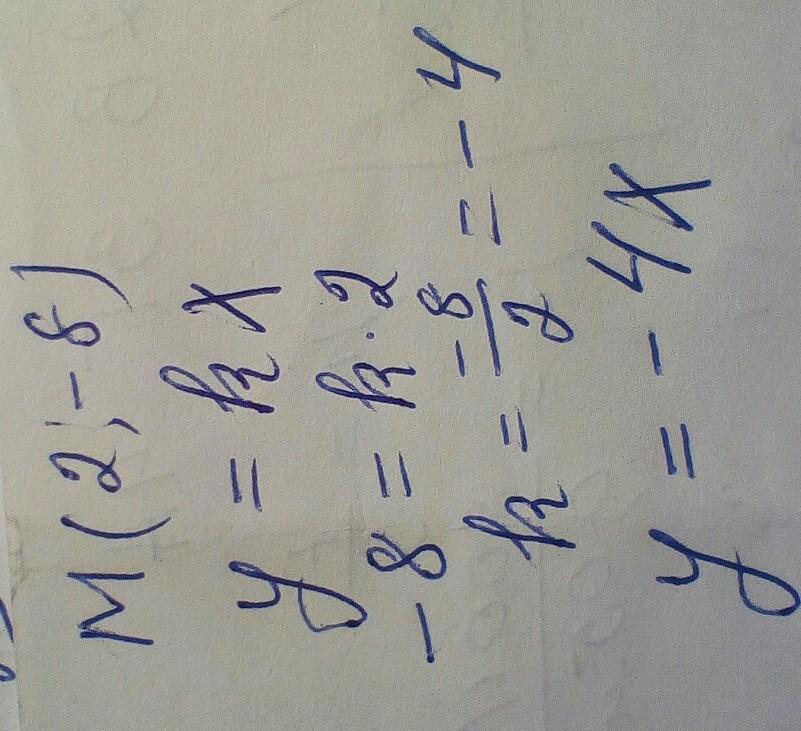 M(2;-8)
y = kx
-8 = k·2
k = -8/2 = -4
y = -4x